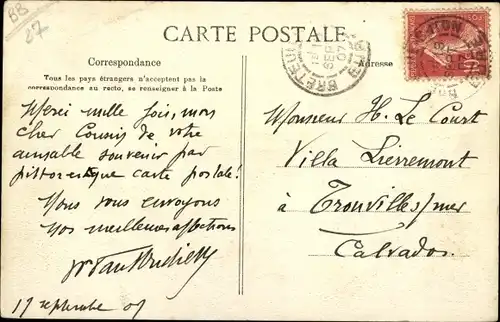 BB
27
CARTE POSTALE
Correspondance
Adresse
Tous les pays étrangers n'acceptent pas la
correspondance au recto, se renseigner à la Poste
Merci mille fois, mon
cher Cousin de votre
aimable souvenir par
pittoresque carte postale!
Nous vous envoyons
nos meilleures affections
17 septembre 07
Monsieur H. Le Court
Villa Lierremont
à Trouville s/mer
Calvados.
BRETEUIL
SEPT
07